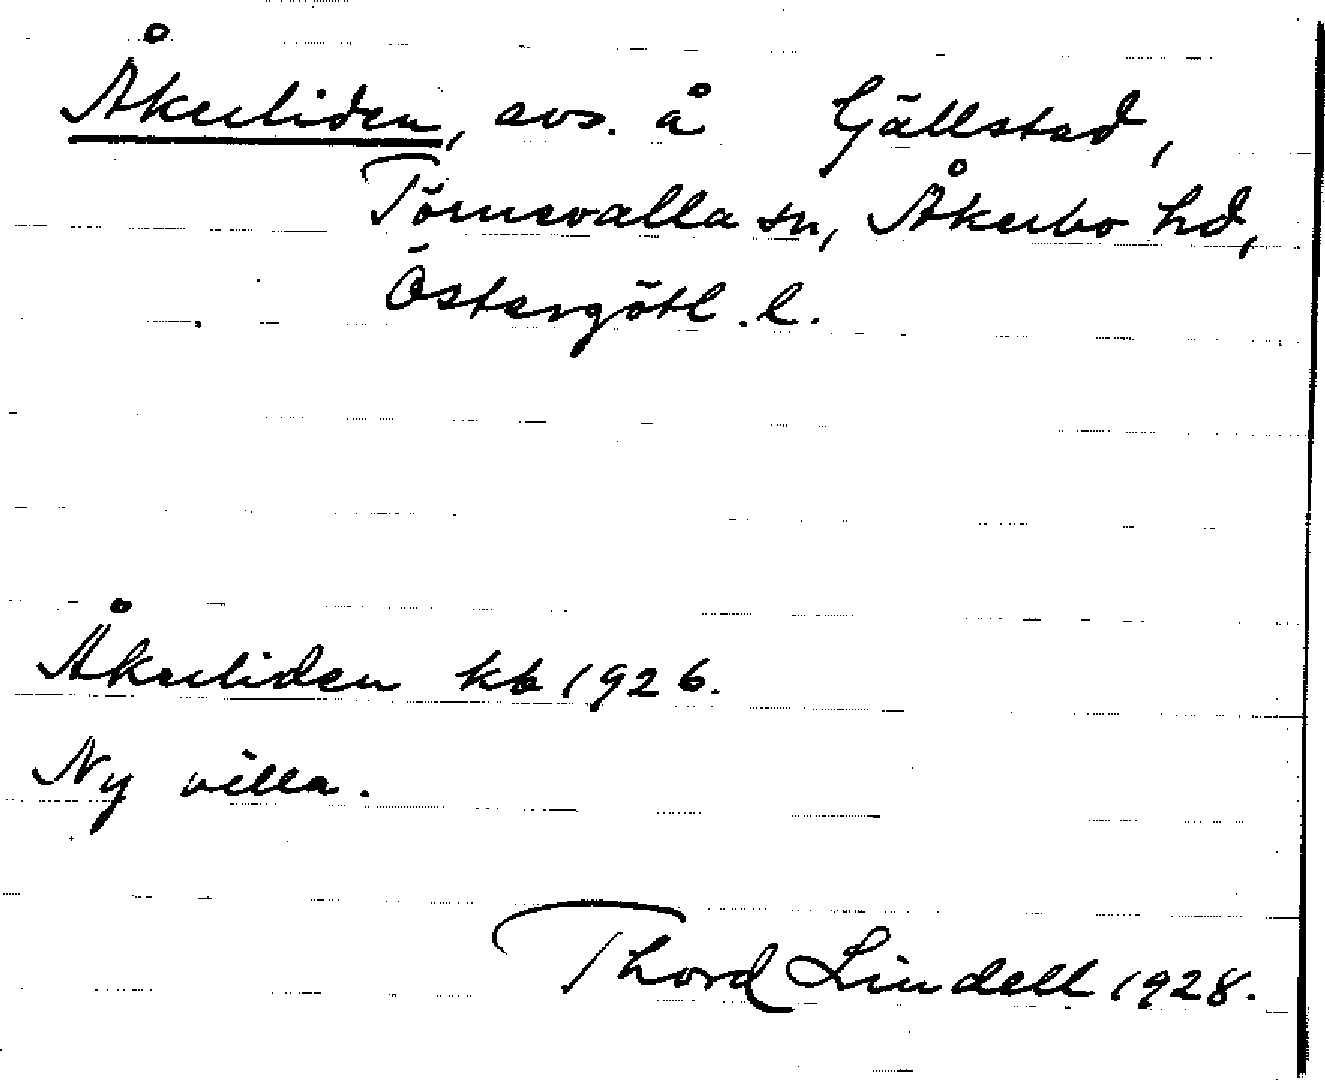 Åkerliden, avs. å Gällstad,
Törnevalla sn, Åkerbo hd,
Östergötl. l.
Åkerliden kb 1926.
Ny villa.
Thord Lindell 1928.